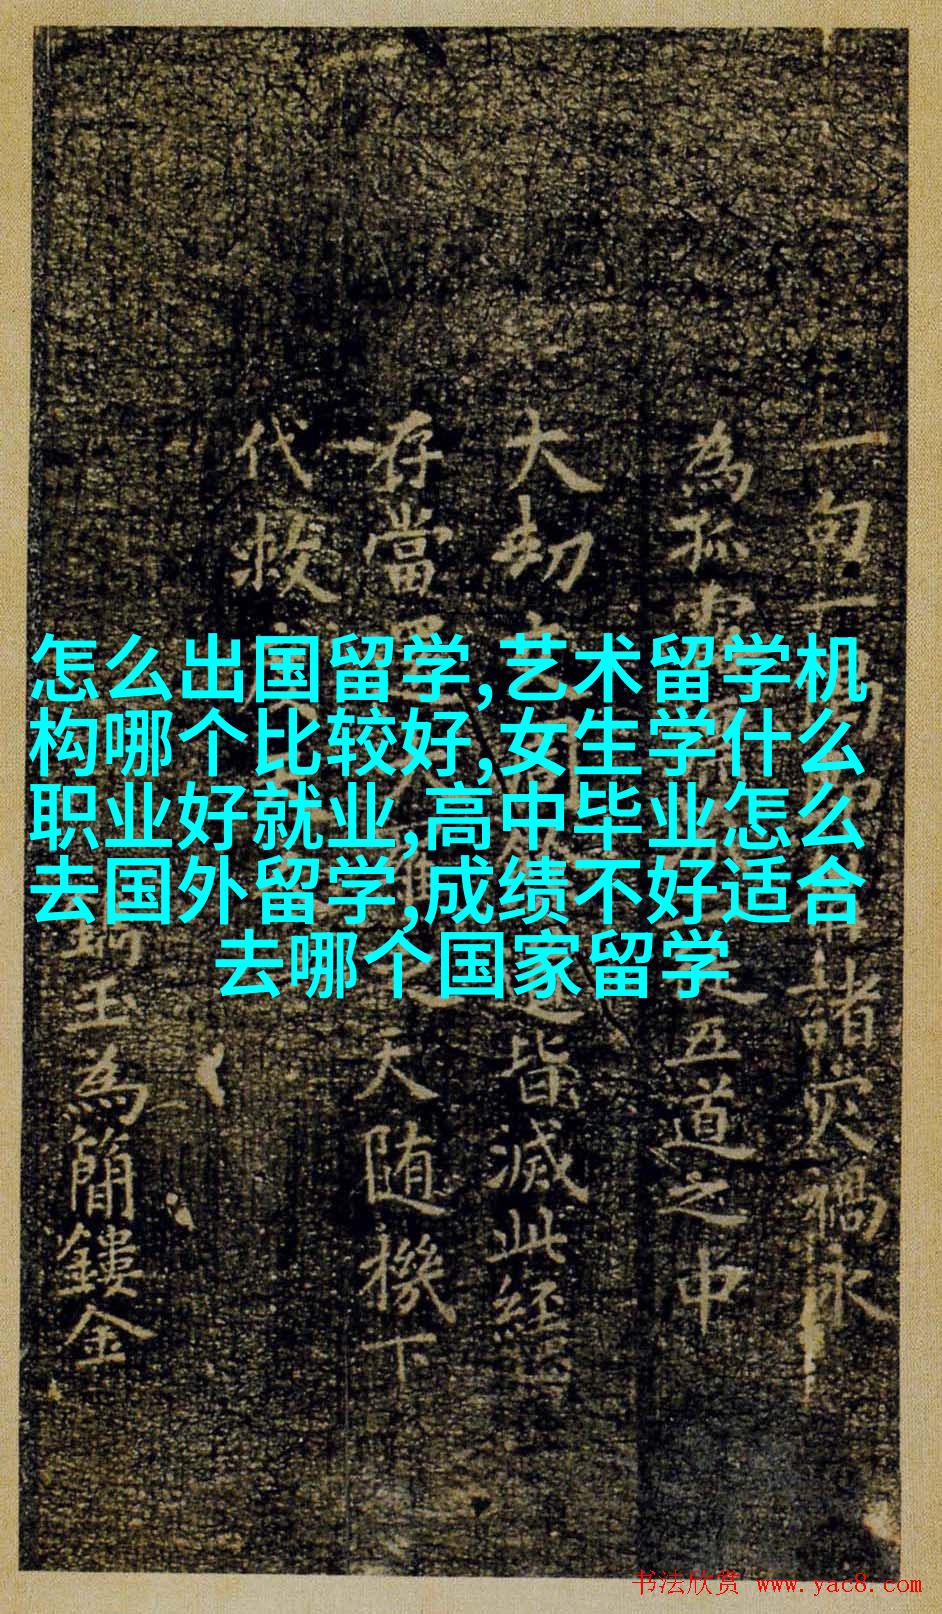 怎么出国留学,艺术留学机
构哪个比较好,女生学什么
职业好就业,高中毕业怎么
去国外留学,成绩不好适合
去哪个国家留学
一句一諸灾禍永
為孤五道之中
大劫皆滅此經
存當天随機下
代救
玉為簡鏤金
书法欣赏 www.yac8.com